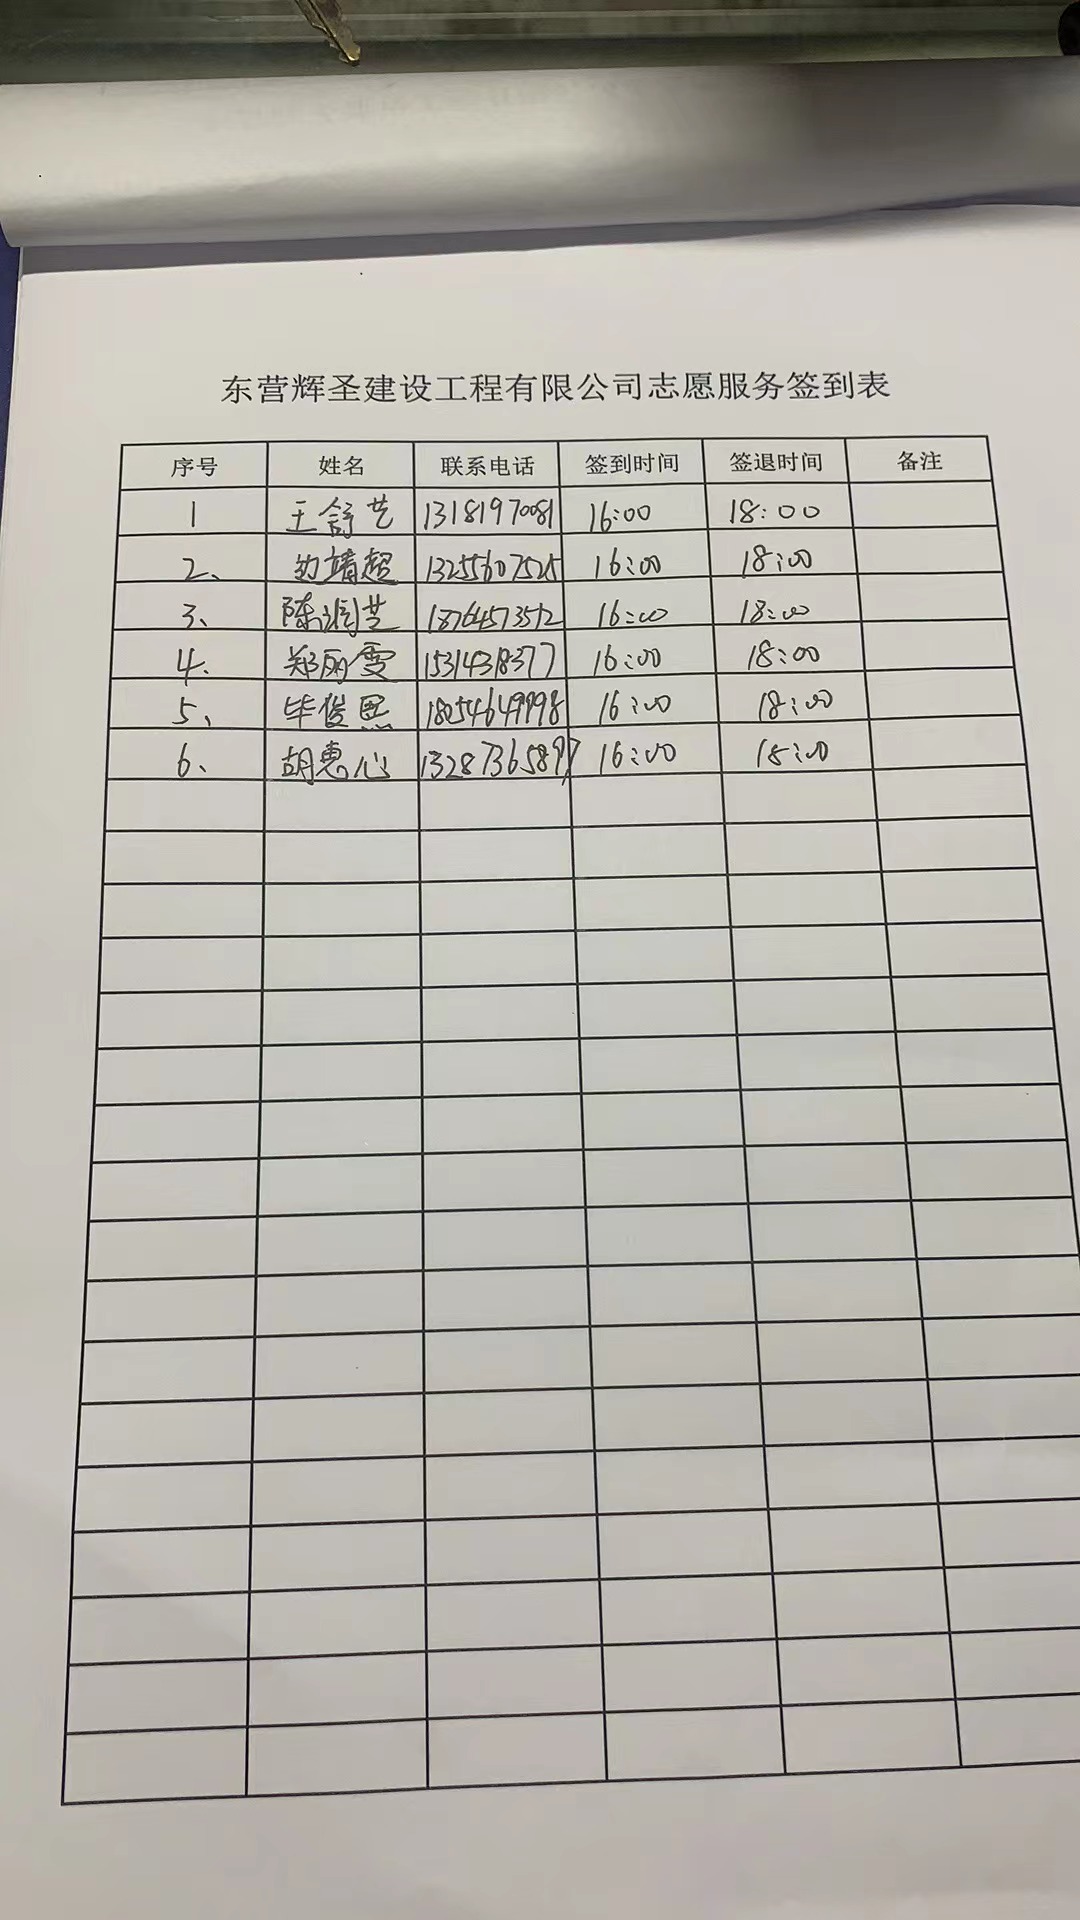 东营辉圣建设工程有限公司志愿服务签到表
序号 姓名 联系电话 签到时间 签退时间 备注
1 王舒艺 13181970081 16:00 18:00
2、 边靖超 13255607525 16:00 18:00
3、 陈润芝 18764573512 16:00 18:00
4、 郑丽雯 15314318377 16:00 18:00
5、 毕俊熙 18054649998 16:00 18:00
6、 胡惠心 13287365897 16:00 18:00